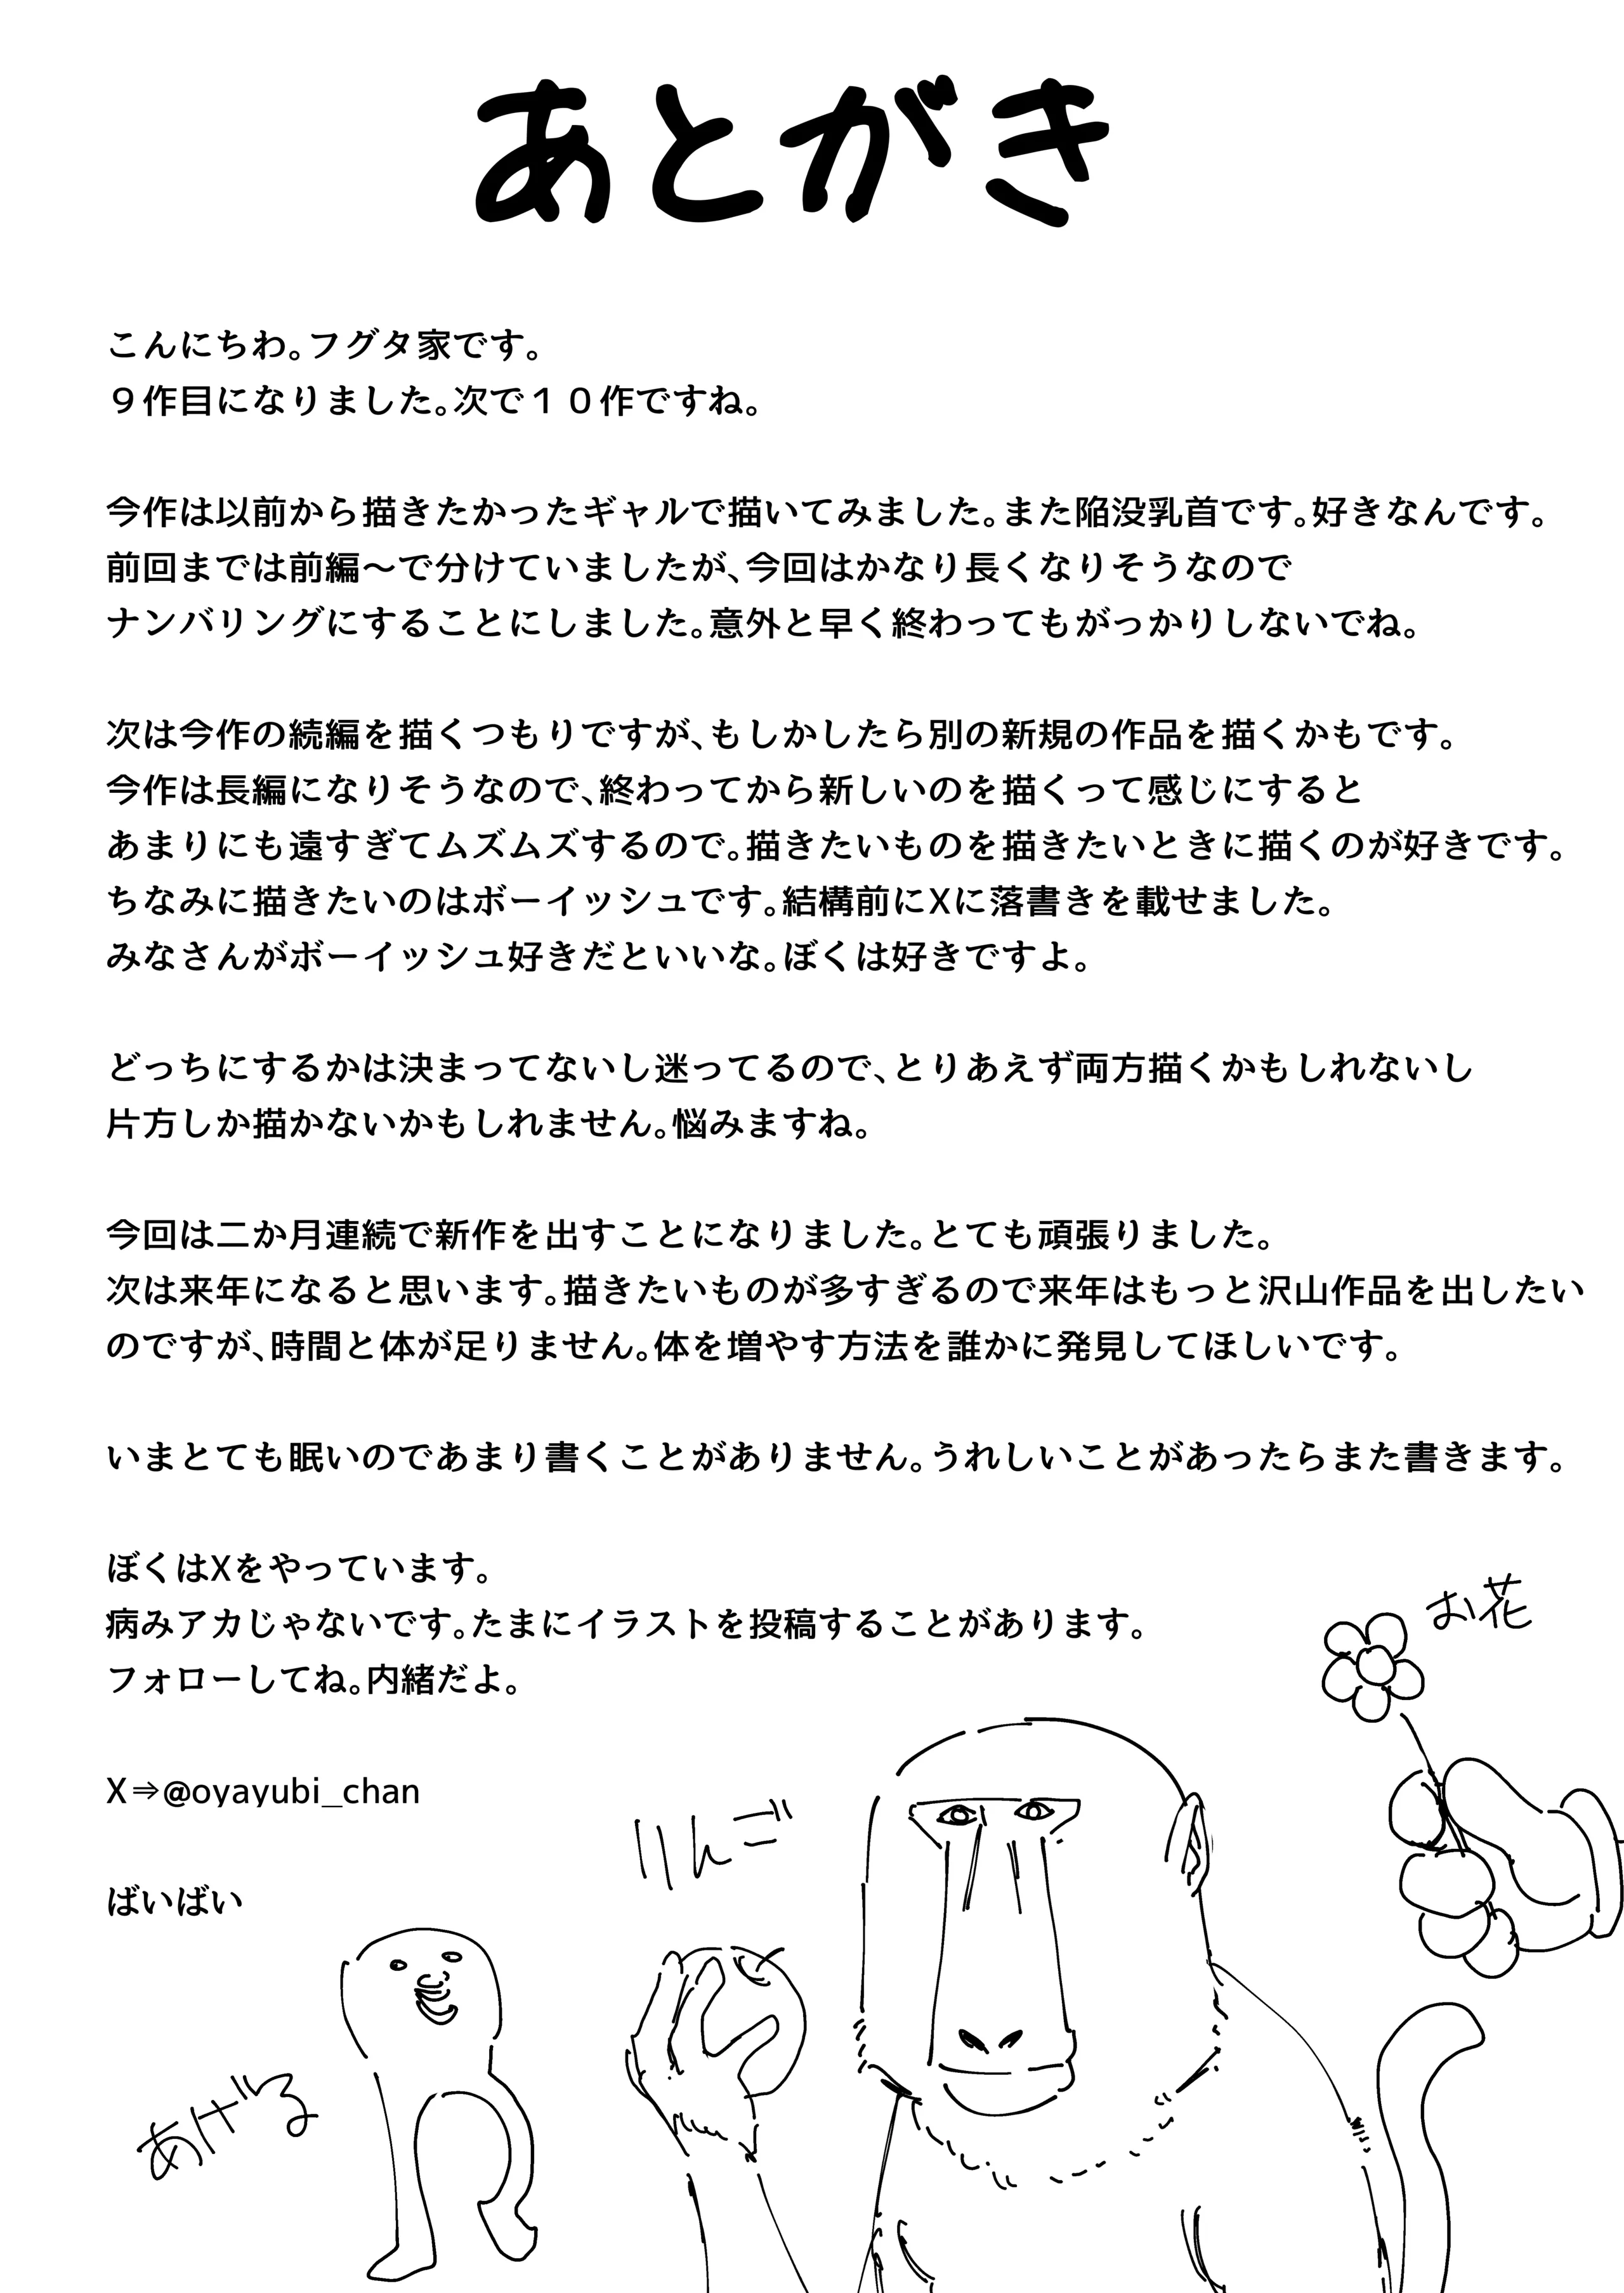 あとがき
こんにちわ。フグタ家です。
９作目になりました。次で１０作ですね。
今作は以前から描きたかったギャルで描いてみました。また陥没乳首です。好きなんです。
前回までは前編～で分けていましたが、今回はかなり長くなりそうなので
ナンバリングにすることにしました。意外と早く終わってもがっかりしないでね。
次は今作の続編を描くつもりですが、もしかしたら別の新規の作品を描くかもです。
今作は長編になりそうなので、終わってから新しいのを描くって感じにすると
あまりにも遠すぎてムズムズするので。描きたいものを描きたいときに描くのが好きです。
ちなみに描きたいのはボーイッシュです。結構前にXに落書きを載せました。
みなさんがボーイッシュ好きだといいな。ぼくは好きですよ。
どっちにするかは決まってないし迷ってるので、とりあえず両方描くかもしれないし
片方しか描かないかもしれません。悩みますね。
今回は二か月連続で新作を出すことになりました。とても頑張りました。
次は来年になると思います。描きたいものが多すぎるので来年はもっと沢山作品を出したい
のですが、時間と体が足りません。体を増やす方法を誰かに発見してほしいです。
いまとても眠いのであまり書くことがありません。うれしいことがあったらまた書きます。
ぼくはXをやっています。
病みアカじゃないです。たまにイラストを投稿することがあります。
フォローしてね。内緒だよ。
X⇒@oyayubi_chan
ばいばい
お花
りんご
あげる